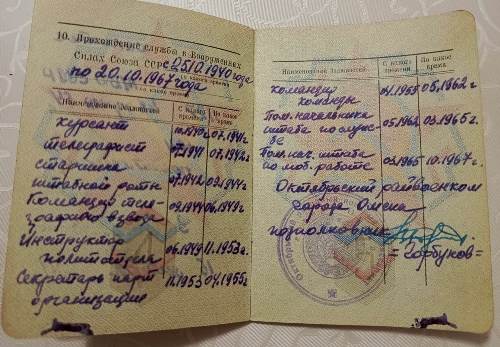 10. Прохождение службы в Вооруженных
Силах Союза ССР с 05.10.1940 года
по 20.10.1967 года
Наименование должностей
С какого времени
По какое время
курсант 10.1940 07.1941г
телеграфист 07.1941 07.1942г
старшина
штабной роты 07.1942 09.1944г
Командир теле-
графного взвода 09.1944 06.1949г
Инструктор
политотдела 06.1949 11.1953г.
Секретарь парт
организации 11.1953 04.1955г.
Наименование должностей
С какого времени
По какое время
командир
команды 04.1955 05.1962г
Пом. начальника
штаба по служ-
бе 05.1962 03.1965г.
Пом. нач. штаба
по моб. работе 03.1965 10.1967г.
Октябрьский райвоенком
города Омска
подполковник
=Горбунов=